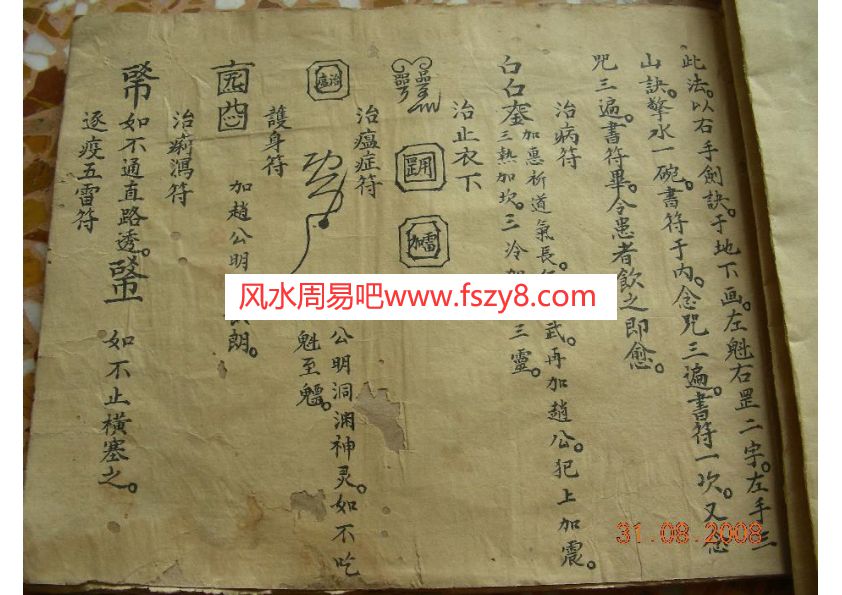 此法。以右手劍訣。于地下画。左魁右罡二字。左手三
山訣。擎水一碗。書符于内。念咒三遍。書符一次。又念
咒三遍。書符畢。令患者飲之即愈。
治病符
加惡祈道氣長
武。再加趙公。犯上加震。
三熱加坎。三冷加
三靈。
治止衣下
治瘟症符
公明洞渊神灵。如不吃
魁至魒。
護身符
加趙公明
朗。
治痢瀉符
如不通直路透。
如不止橫塞之。
逐疫五雷符
风水周易吧www.fszy8.com
31.08.2008